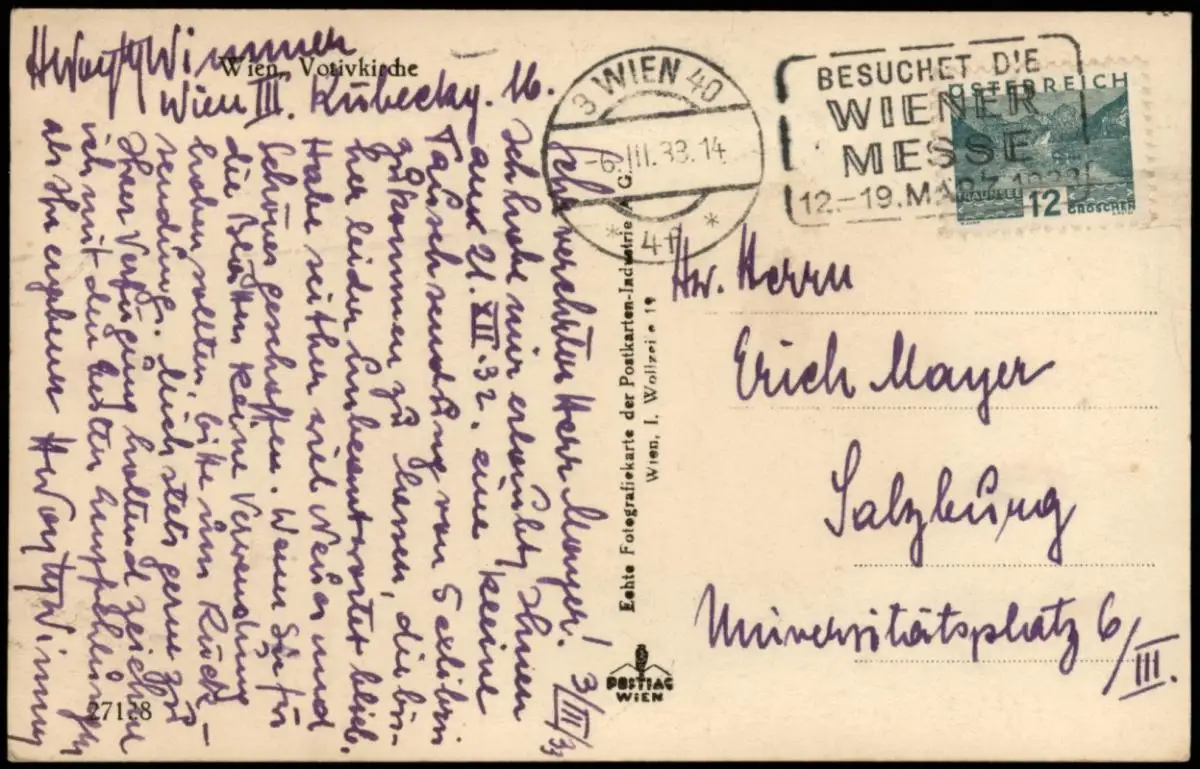 Wimmer
Wien, Votivkirche
Wien III. Kübeckg. 16.
3/III/33
Sehr verehrter Herr Mayer!
Ich habe mir erlaubt, Ihnen
am 21. XII. 32. eine kleine
Tauschsendung von 5 exlibris
zukommen zu lassen, die bis-
her leider unbeantwortet blieb.
Habe seither viel Neues und
Schönes geschaffen. Wenn Sie für
die Blätter keine Verwendung
haben sollten, bitte um Rück-
sendung. Mich stets gerne zu
Ihrer Verfügung haltend zeichne
ich mit den besten Empfehlungen
als Ihr ergebener
Wimmer
27138
Echte Fotografiekarte der Postkarten-Industrie A. G.
Wien, I. Wollzeile 19
POSTIAG
WIEN
3 WIEN 40
-6. III. 33. 14
* 4f *
BESUCHET DIE
WIENER
MESSE
12.-19. MÄRZ 1933
ÖSTERREICH
TRAUNSEE
12
GROSCHEN
Hw. Herrn
Erich Mayer
Salzburg
Universitätsplatz 6/III.